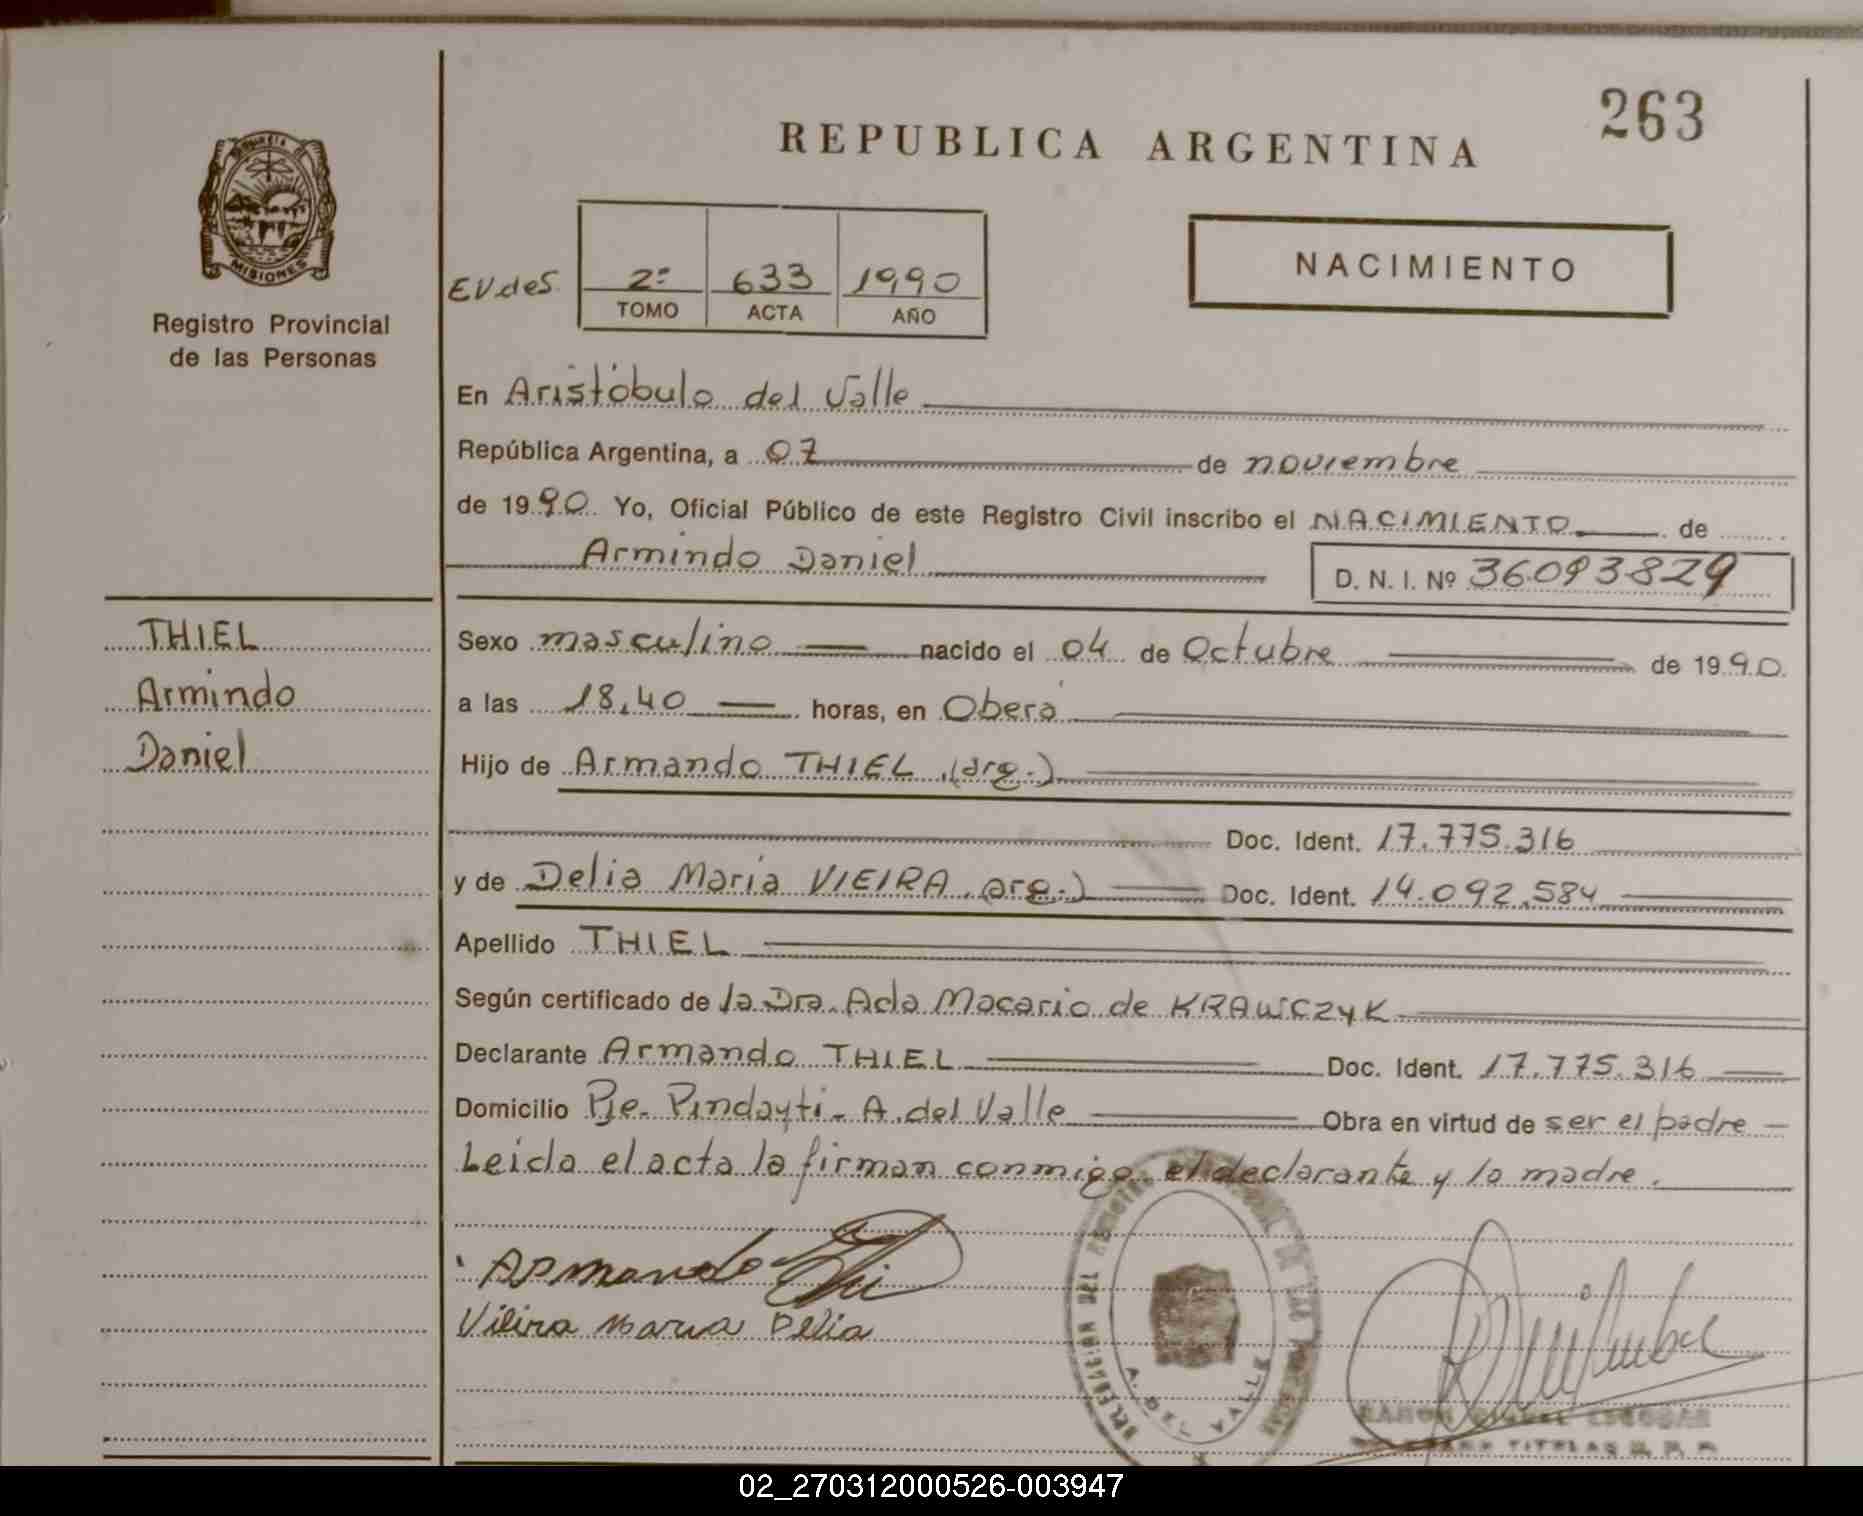 263
REPUBLICA ARGENTINA
MISIONES
Registro Provincial
de las Personas
EV.deS.
2º 633 1990
TOMO ACTA AÑO
NACIMIENTO
En Aristóbulo del Valle
República Argentina, a 07 de noviembre
de 1990. Yo, Oficial Público de este Registro Civil inscribo el NACIMIENTO de
Armindo Daniel
D. N. I. Nº 36093829
THIEL
Armindo
Daniel
Sexo masculino nacido el 04 de Octubre de 1990.
a las 18,40 horas, en Oberá
Hijo de Armando THIEL (arg.)
Doc. Ident. 17.775.316
y de Delia María VIEIRA (arg.) Doc. Ident. 14.092.584
Apellido THIEL
Según certificado de la Dra. Ada Macario de KRAWCZYK
Declarante Armando THIEL Doc. Ident. 17.775.316
Domicilio Pje. Pindayti - A. del Valle Obra en virtud de ser el padre
Leída el acta la firman conmigo el declarante y la madre.
Armando
Vieira Maria Delia
DELEGACION DEL REGISTRO PROVINCIAL DE LAS PERSONAS
A. DEL VALLE
RAMON MIGUEL ESCOBAR
TITULAR
02_270312000526-003947